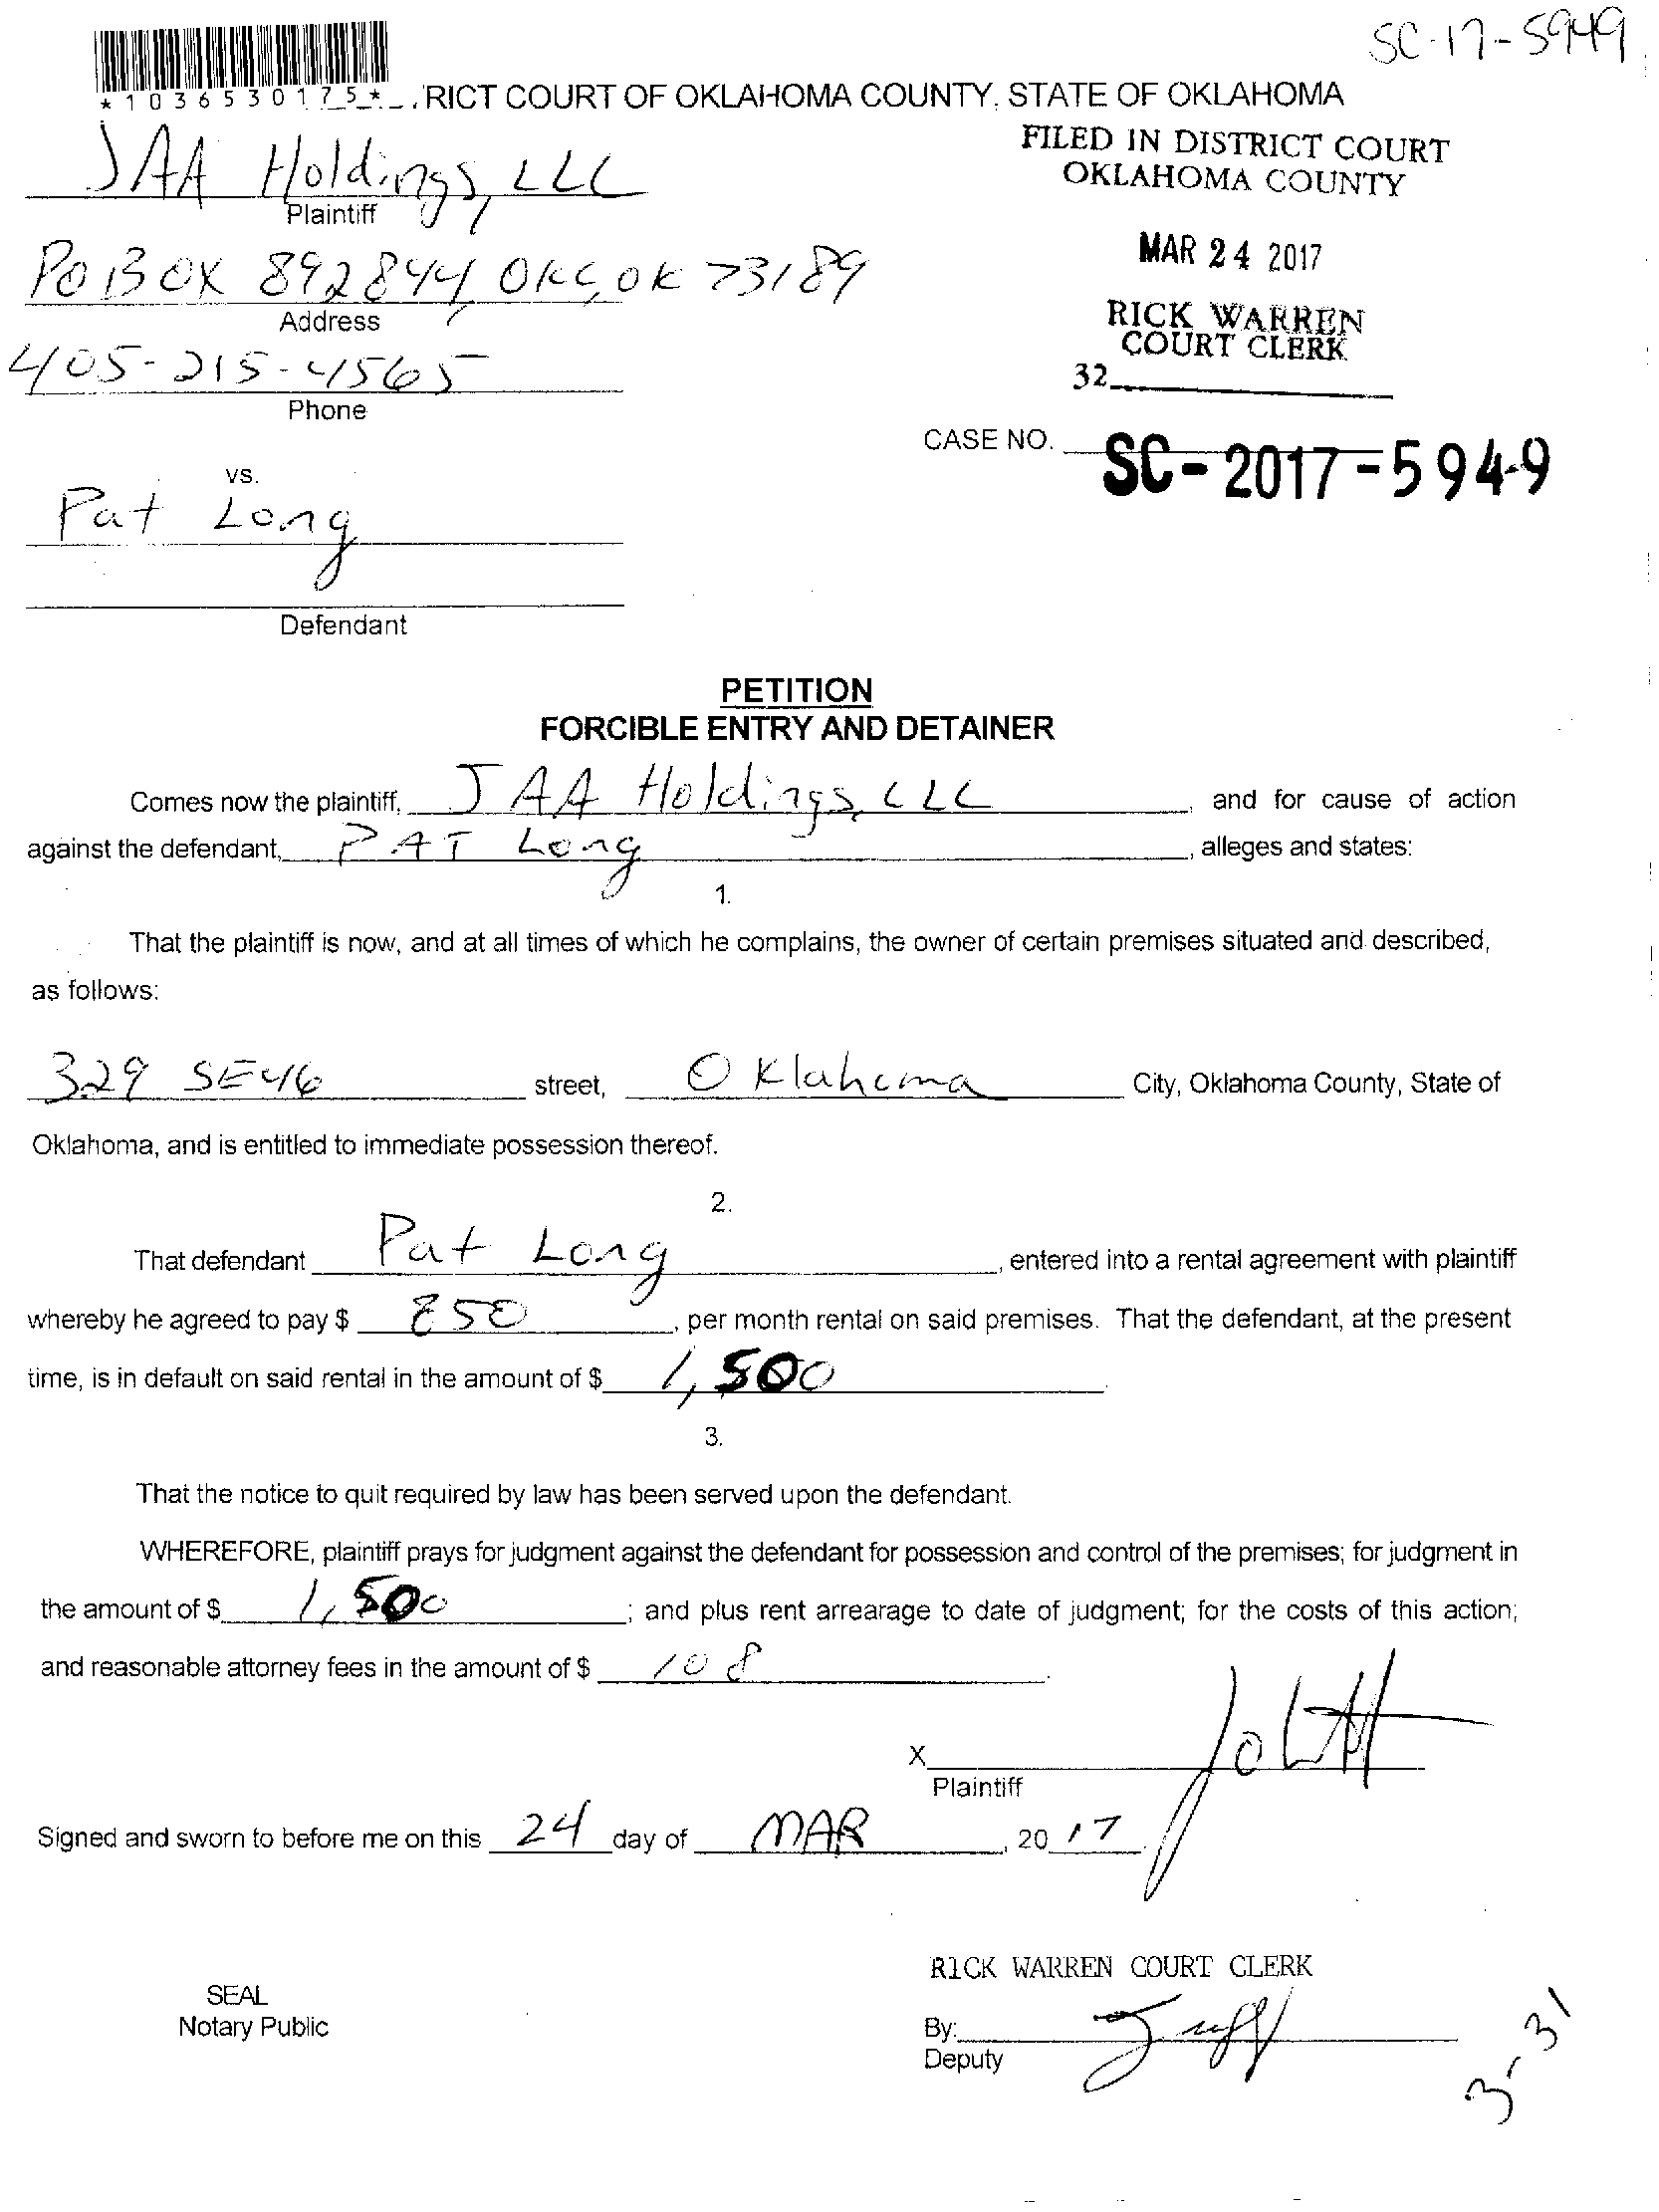 SC-17-5949
*1036530175*
RICT COURT OF OKLAHOMA COUNTY, STATE OF OKLAHOMA
JAA Holdings, LLC
Plaintiff
FILED IN DISTRICT COURT
OKLAHOMA COUNTY
PO BOX 892844, OKC, OK 73189
Address
MAR 24 2017
RICK WARREN
COURT CLERK
405-215-4565
Phone
32
CASE NO. SC-2017-5949
vs.
Pat Long
Defendant
PETITION
FORCIBLE ENTRY AND DETAINER
Comes now the plaintiff, JAA Holdings, LLC, and for cause of action
against the defendant, PAT Long, alleges and states:
1.
That the plaintiff is now, and at all times of which he complains, the owner of certain premises situated and described,
as follows:
329 SE 46 street, Oklahoma City, Oklahoma County, State of
Oklahoma, and is entitled to immediate possession thereof.
2.
That defendant Pat Long, entered into a rental agreement with plaintiff
whereby he agreed to pay $ 850, per month rental on said premises. That the defendant, at the present
time, is in default on said rental in the amount of $ 1,500.
3.
That the notice to quit required by law has been served upon the defendant.
WHEREFORE, plaintiff prays for judgment against the defendant for possession and control of the premises; for judgment in
the amount of $ 1,500; and plus rent arrearage to date of judgment; for the costs of this action;
and reasonable attorney fees in the amount of $ 108.
X
Plaintiff
Signed and sworn to before me on this 24 day of MAR, 20 17.
RICK WARREN COURT CLERK
SEAL
Notary Public
By:
Deputy
3-31